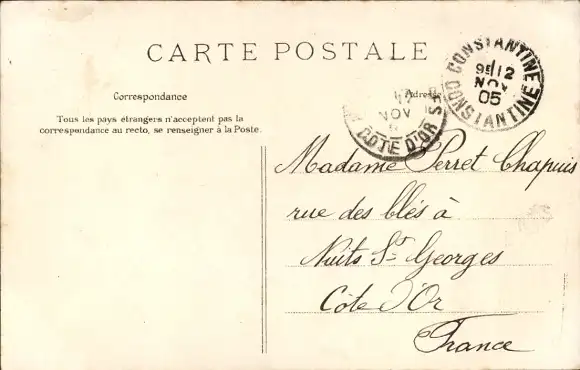 CARTE POSTALE
Correspondance
Adresse
Tous les pays étrangers n'acceptent pas la
correspondance au recto, se renseigner à la Poste.
CONSTANTINE
12
NOV
05
CONSTANTINE
NOV
COTE D'OR
Madame Perret Chapuis
rue des blés à
Nuits St Georges
Côte d'Or
France